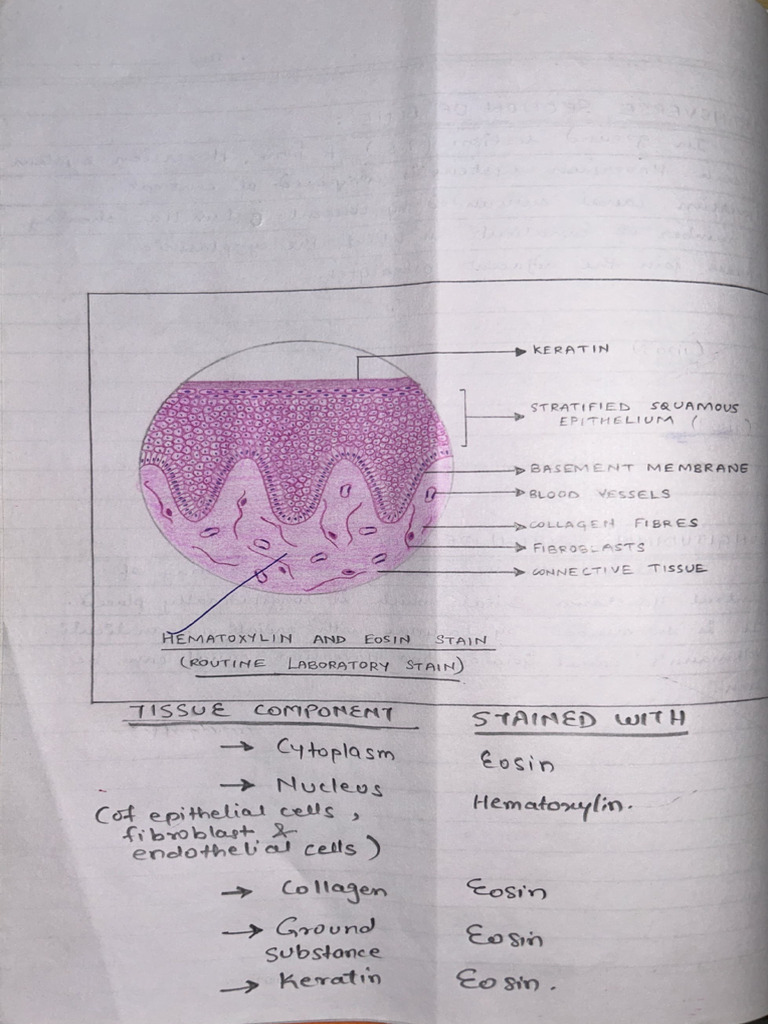 KERATIN
STRATIFIED SQUAMOUS
EPITHELIUM (
BASEMENT MEMBRANE
BLOOD VESSELS
COLLAGEN FIBRES
FIBROBLASTS
CONNECTIVE TISSUE
HEMATOXYLIN AND EOSIN STAIN
(ROUTINE LABORATORY STAIN)
TISSUE COMPONENT STAINED WITH
→ Cytoplasm Eosin
→ Nucleus Hematoxylin.
(of epithelial cells,
fibroblast &
endothelial cells)
→ Collagen Eosin
→ Ground Eosin
substance
→ Keratin Eosin.